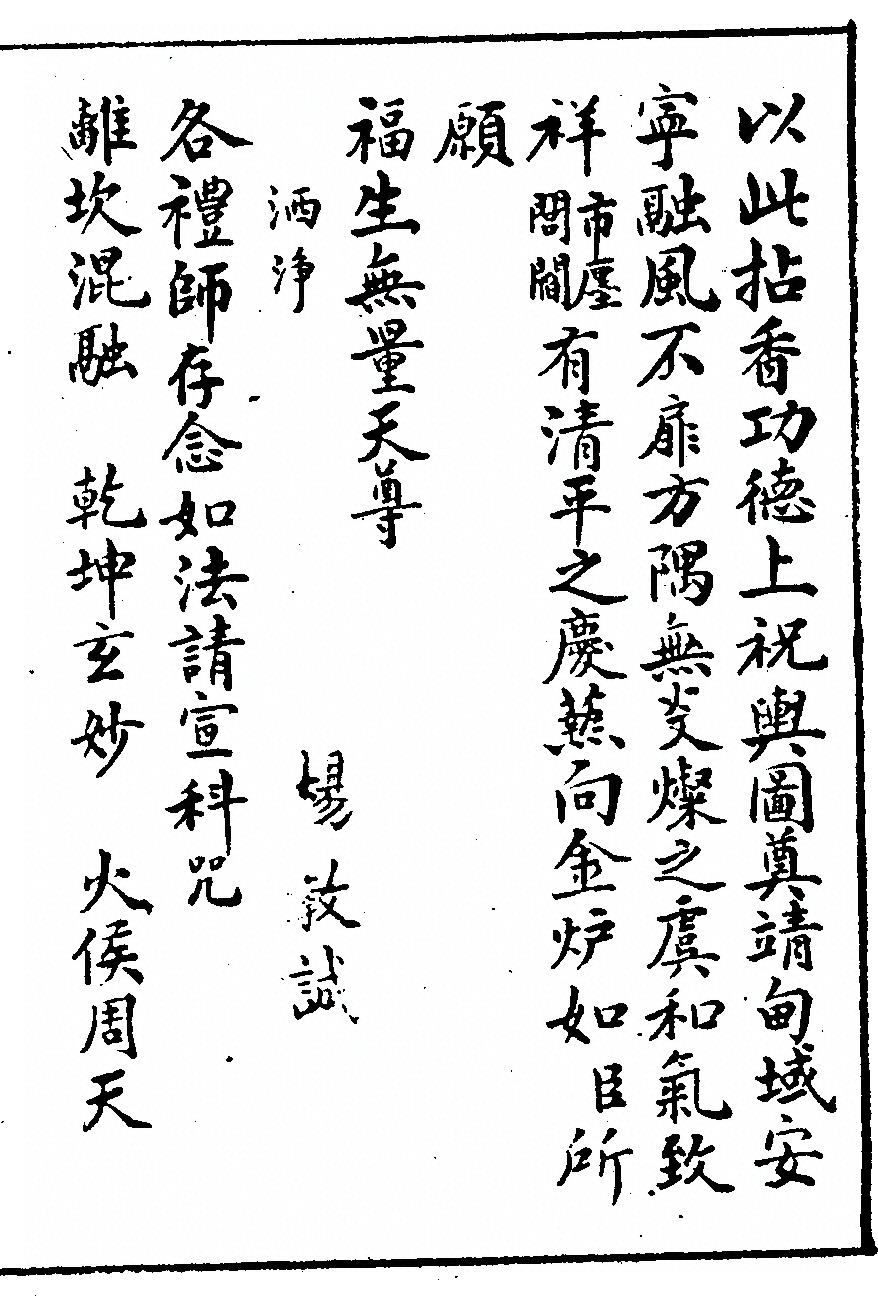 以此拈香功德上祝輿圖奠靖甸域安
寧融風不扉方隅無炎燦之虞和氣致
祥市廛閭閻有清平之慶爇向金炉如臣所
願
福生無量天尊
洒淨 揚教誠
各禮師存念如法請宣科咒
離坎混融 乾坤玄妙 火侯周天